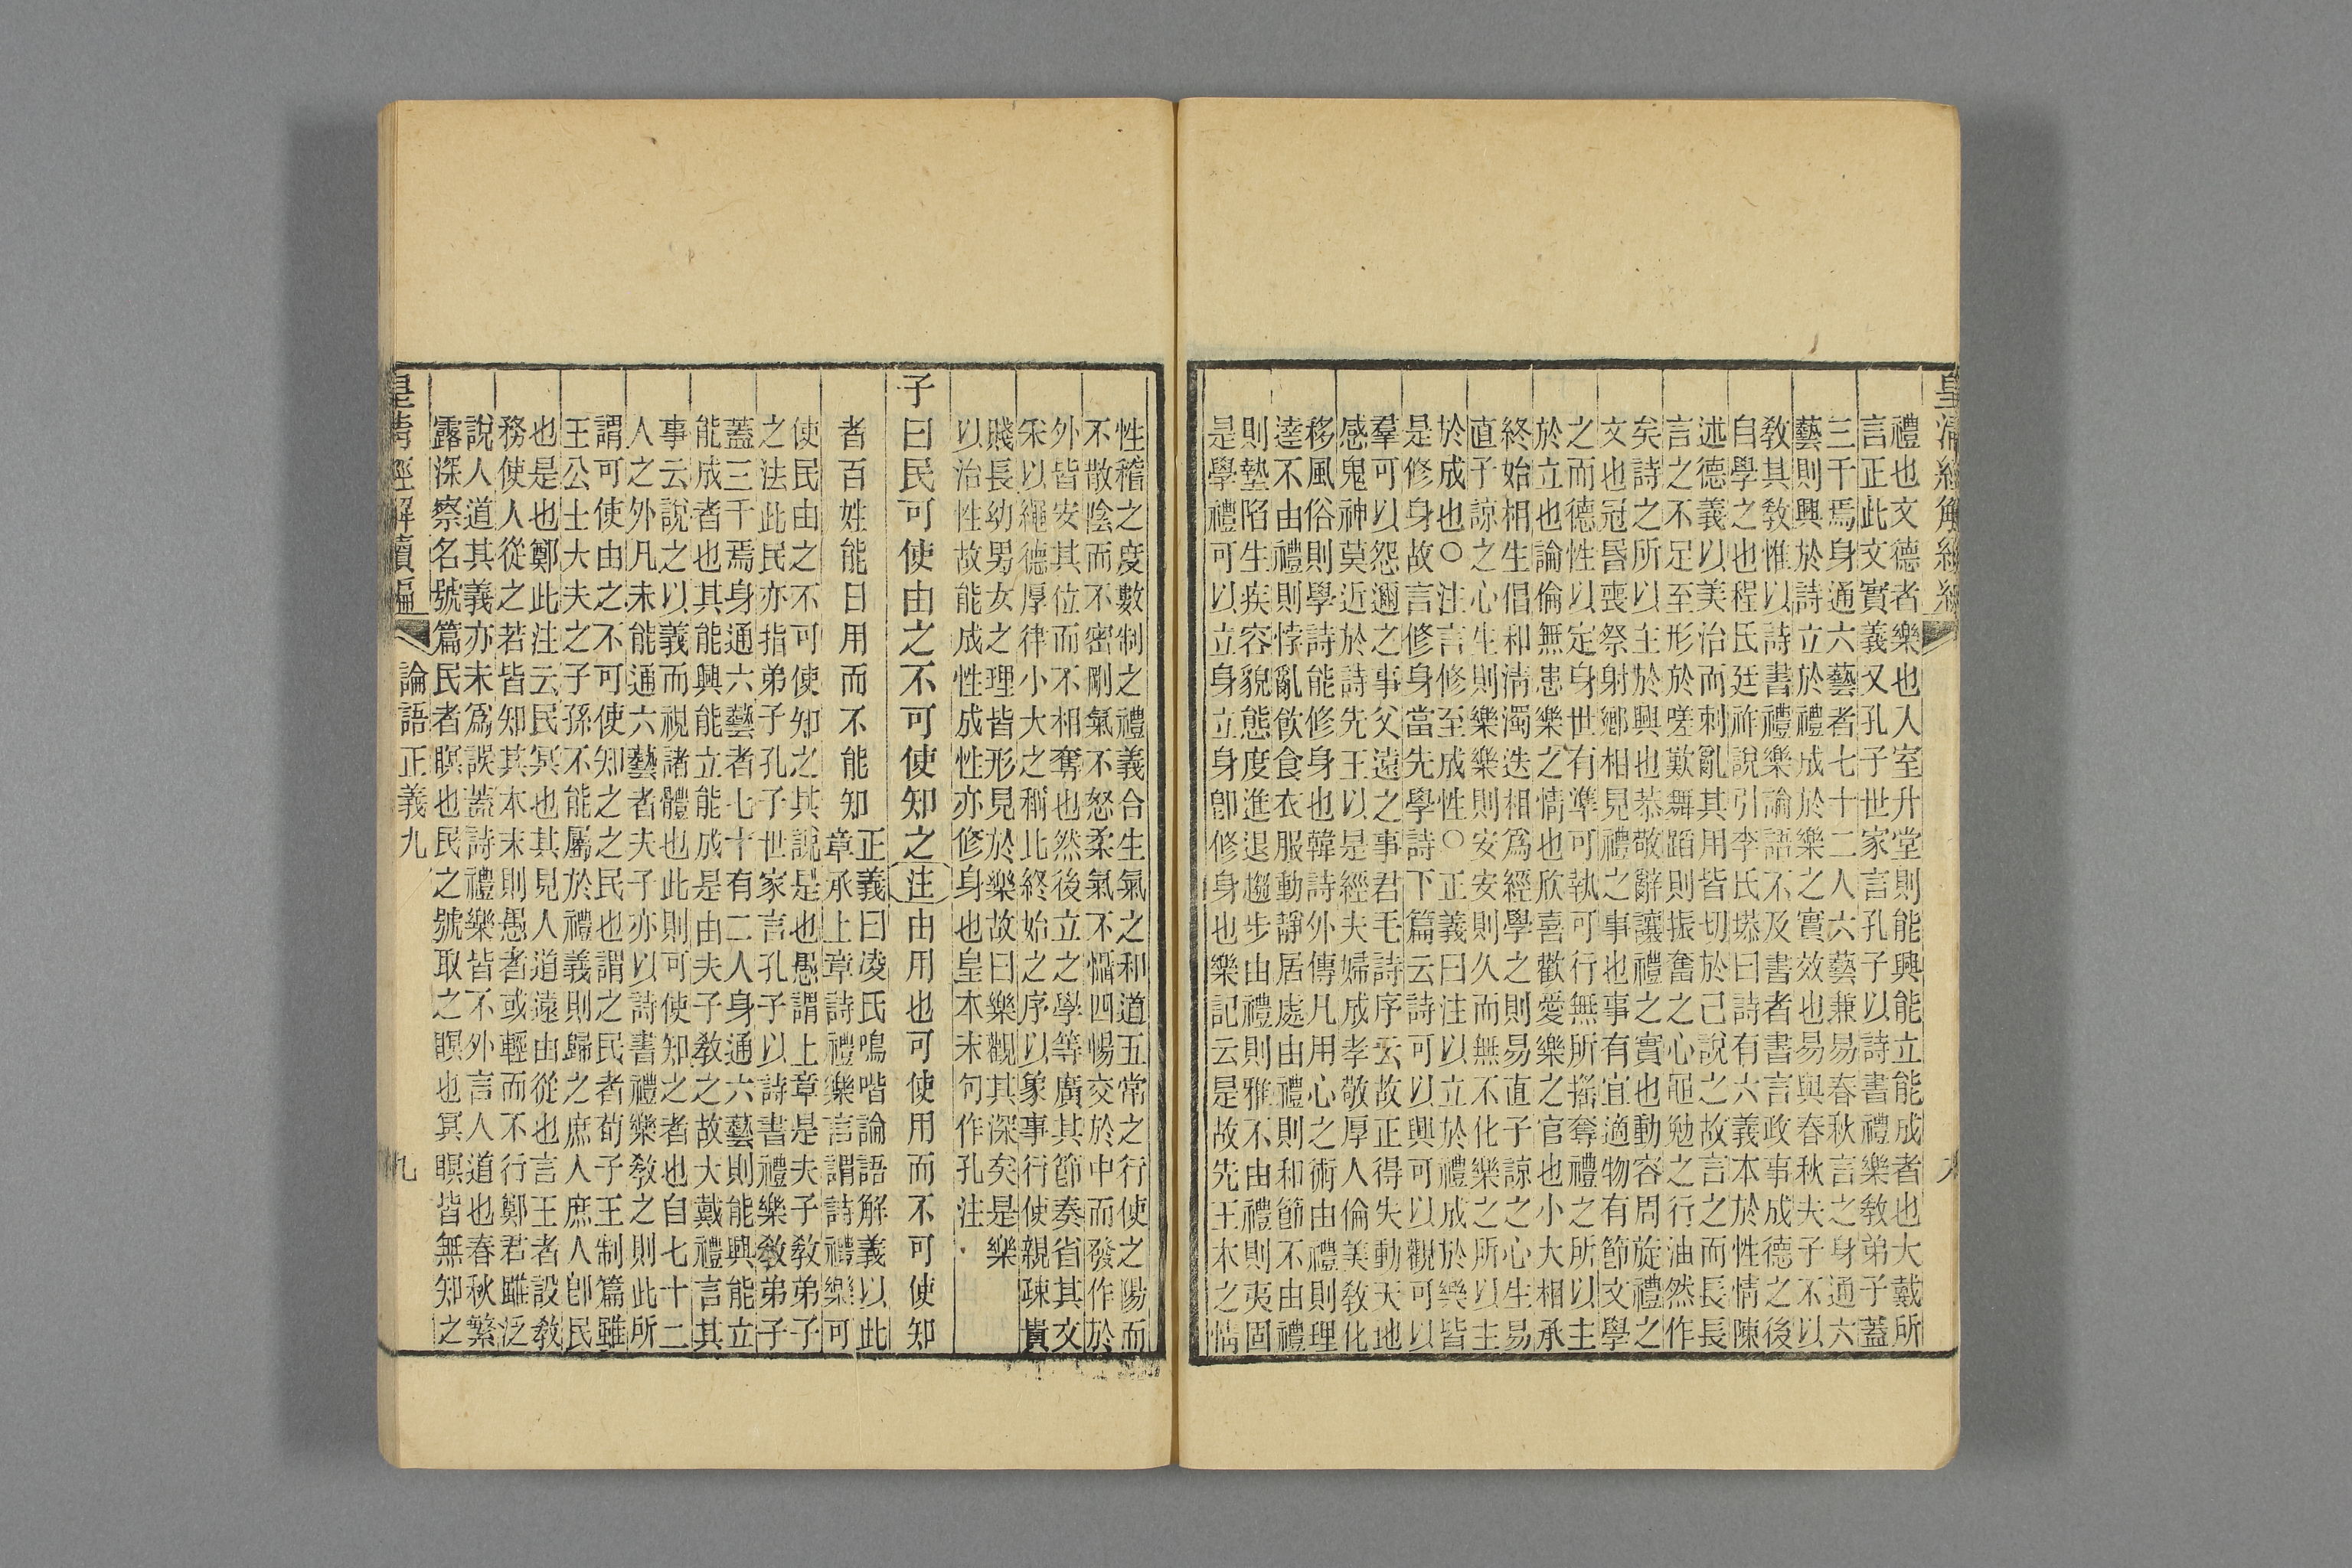 禮也文德者樂也入室升堂則能興能立能成者也大戴所
言正此文實義又孔子世家言孔子以詩書禮樂敎弟子蓋
三千焉身通六藝者七十二人六藝兼易春秋言之身通六
藝則興於詩立於禮成於樂之實效也易與春秋夫子不以
敎其敎惟以詩書禮樂論語不及書者書言政事成德之後
自學之也程氏廷祚說引李氏塨曰詩有六義本於性情陳
述德義以美治而刺亂其用皆切於己說之故言之而長長
言之不足至形於嗟歎舞蹈則振奮之心黽勉之行油然作
矣詩之所以主於興也恭敬辭讓禮之實也動容周旋禮之
文也冠昏喪祭射鄉相見禮之事也事有宜適物有節文學
之而德性以定身世有準可執可行無所搖奪禮之所以主
於立也論倫無患樂之情也欣喜歡愛樂之官也小大相承
終始相生倡和淸濁迭相爲經學之則易直子諒之心生易
直子諒之心生則樂樂則安安則久而無不化樂之所以主
於成也○注言修至成性○正義曰注以立於禮成於樂皆
是修身故言修身當先學詩下篇云詩可以興可以觀可以
羣可以怨邇之事父遠之事君毛詩序云故正得失動天地
感鬼神莫近於詩先王以是經夫婦成孝敬厚人倫美敎化
移風俗則學詩能修身也韓詩外傳凡用心之術由禮則理
達不由禮則悖亂飮食衣服動靜居處由禮則和節不由禮
則墊陷生疾容貌態度進退趨步由禮則雅不由禮則夷固
是學禮可以立身立身卽修身也樂記云是故先王本之情
性稽之度數制之禮義合生氣之和道五常之行使之陽而
不散陰而不密剛氣不怒柔氣不懾四暢交於中而發作於
外皆安其位而不相奪也然後立之學等廣其節奏省其文
采以繩德厚律小大之稱比終始之序以象事行使親疎貴
賤長幼男女之理皆形見於樂故曰樂觀其深矣是樂
以治性故能成性成性亦修身也皇本末句作孔注
子曰民可使由之不可使知之注由用也可使用而不可使知
者百姓能日用而不能知
正義曰凌氏鳴喈論語解義以此
章承上章詩禮樂言謂詩禮樂可
使民由之不可使知之其說是也愚謂上章是夫子敎弟子
之法此民亦指弟子孔子世家言孔子以詩書禮樂敎弟子
蓋三千焉身通六藝者七十有二人身通六藝則能興能立
能成者也其能興能立能成是由夫子敎之故大戴禮言其
事云說之以義而視諸體也此則可使知之者也自七十二
人之外凡未能通六藝者夫子亦以詩書禮樂敎之則此所
謂可使由之不可使知之之民也謂之民者荀子王制篇雖
王公士大夫之子孫不能屬於禮義則歸之庶人庶人卽民
也是也鄭此注云民冥也其見人道遠由從也言王者設敎
務使人從之若皆知其本末則愚者或輕而不行鄭君雖泛
說人道其義亦未爲誤蓋詩禮樂皆不外言人道也春秋繁
露深察名號篇民者瞑也民之號取之瞑也冥瞑皆無知之
皇淸經解續編
論語正義九
九